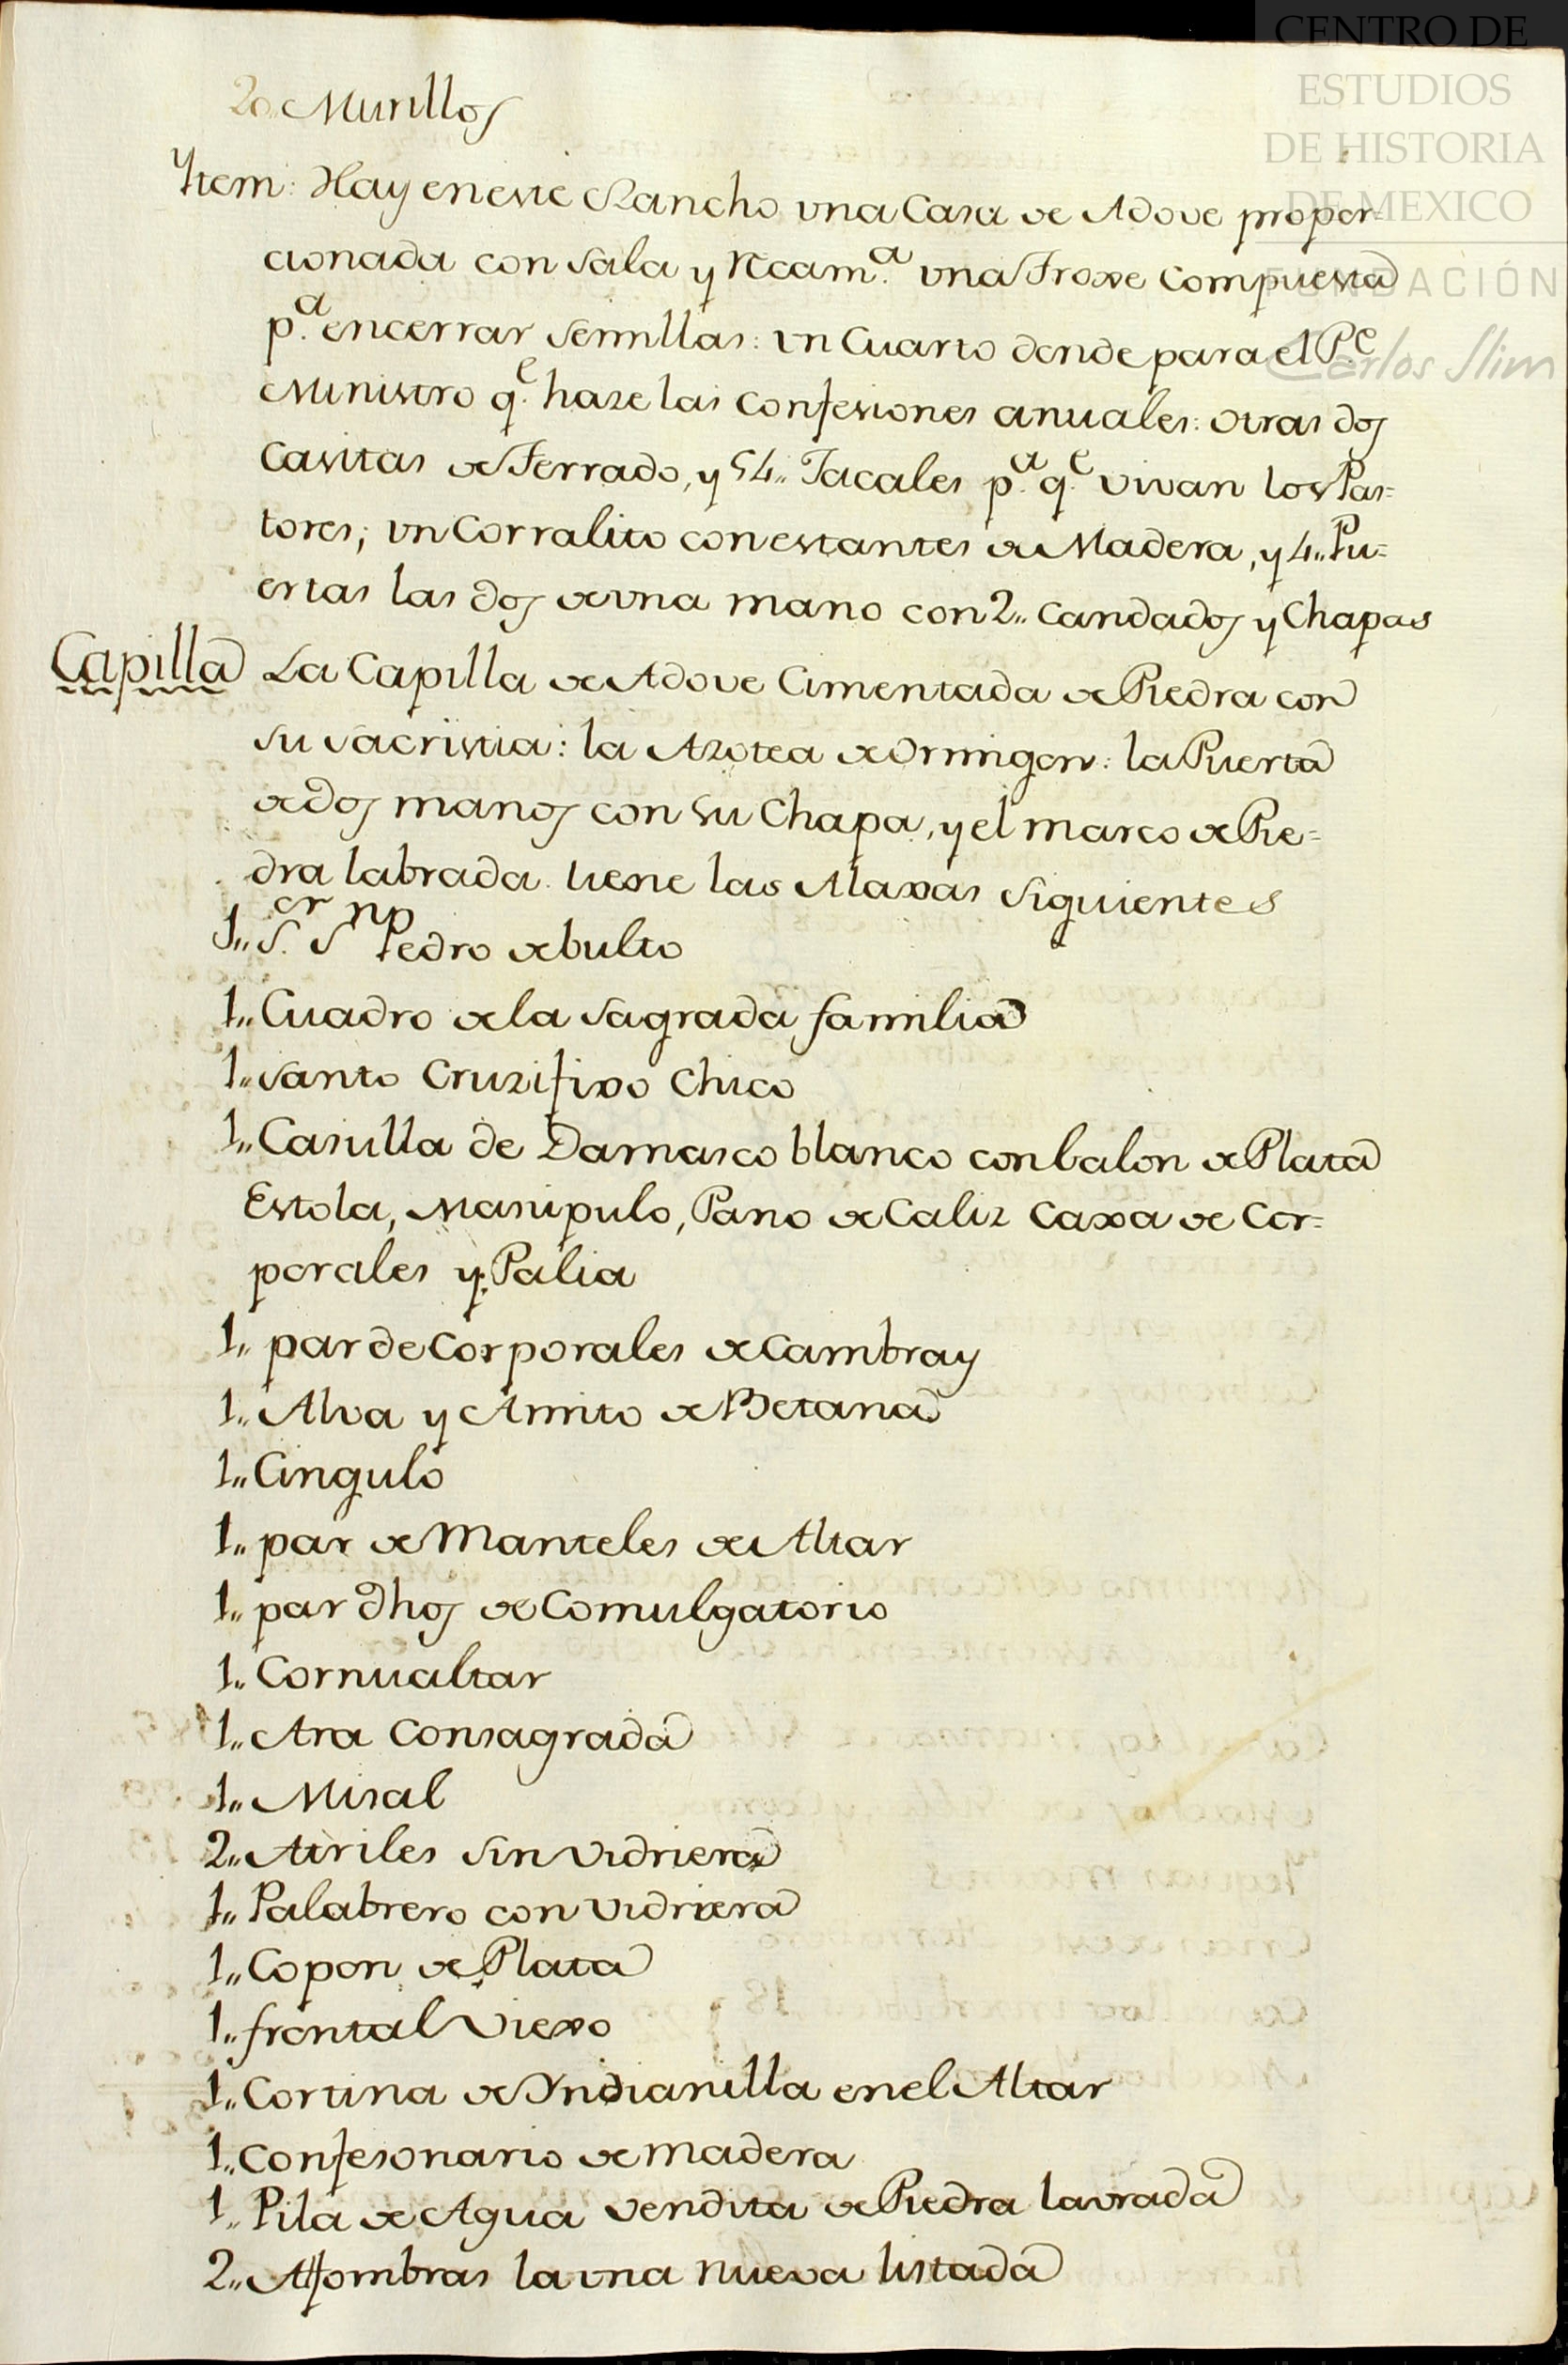 CENTRO DE
ESTUDIOS
DE HISTORIA
DE MEXICO
FUNDACIÓN
Carlos Slim
20,, Murillos
Ytem: Hay en este Rancho una Casa de Adove propor=
cionada con Sala y Rcam.ª una Troxe Compuesta
p.ª encerrar Semillas: un Cuarto donde para el P.e
Ministro q.e hase las Confesiones anuales: otras dos
Casitas de Terrado, y 54,, Jacales p.ª q.e vivan los Pas=
tores; un Corralito con estantes de Madera, y 4,, Pu=
ertas las dos de una mano con 2,, Candados y Chapas
Capilla La Capilla de Adove Cimentada de Piedra con
su Sacristia: la Azotea de Ormigon: la Puerta
de dos manos con su Chapa, y el marco de Pie=
dra labrada. tiene las Alaxas Siguientes
1,, S.or S.n Pedro de bulto
1,, Cuadro de la Sagrada familia
1,, Santo Cruzifixo Chico
1,, Casulla de Damasco blanco con balon de Plata
Estola, Manipulo, Pano de Caliz Caxa de Cor=
porales y Palia
1,, par de Corporales de Cambray
1,, Alva y Amito de Bretana
1,, Cingulo
1,, par de Manteles de Altar
1,, par dhos de Comulgatorio
1,, Cornualtar
1,, Ara Consagrada
1,, Misal
2,, Atriles Sin Vidriera
1,, Palabrero con Vidriera
1,, Copon de Plata
1,, frontal Viexo
1,, Cortina de Yndianilla en el Altar
1,, Confesonario de madera
1,, Pila de Agua vendita de Piedra lavrada
2,, Alfombras la una nueva listada